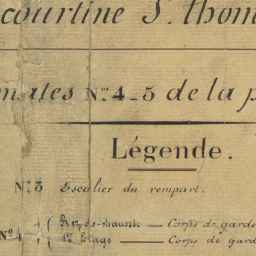 courtine St. Thom
nales Nos. 4-5 de la p
Légende.
No. 3 Escalier du rempart.
No. 4 Rez-de-chaussée — Corps de garde
1er Étage — Corps de gard